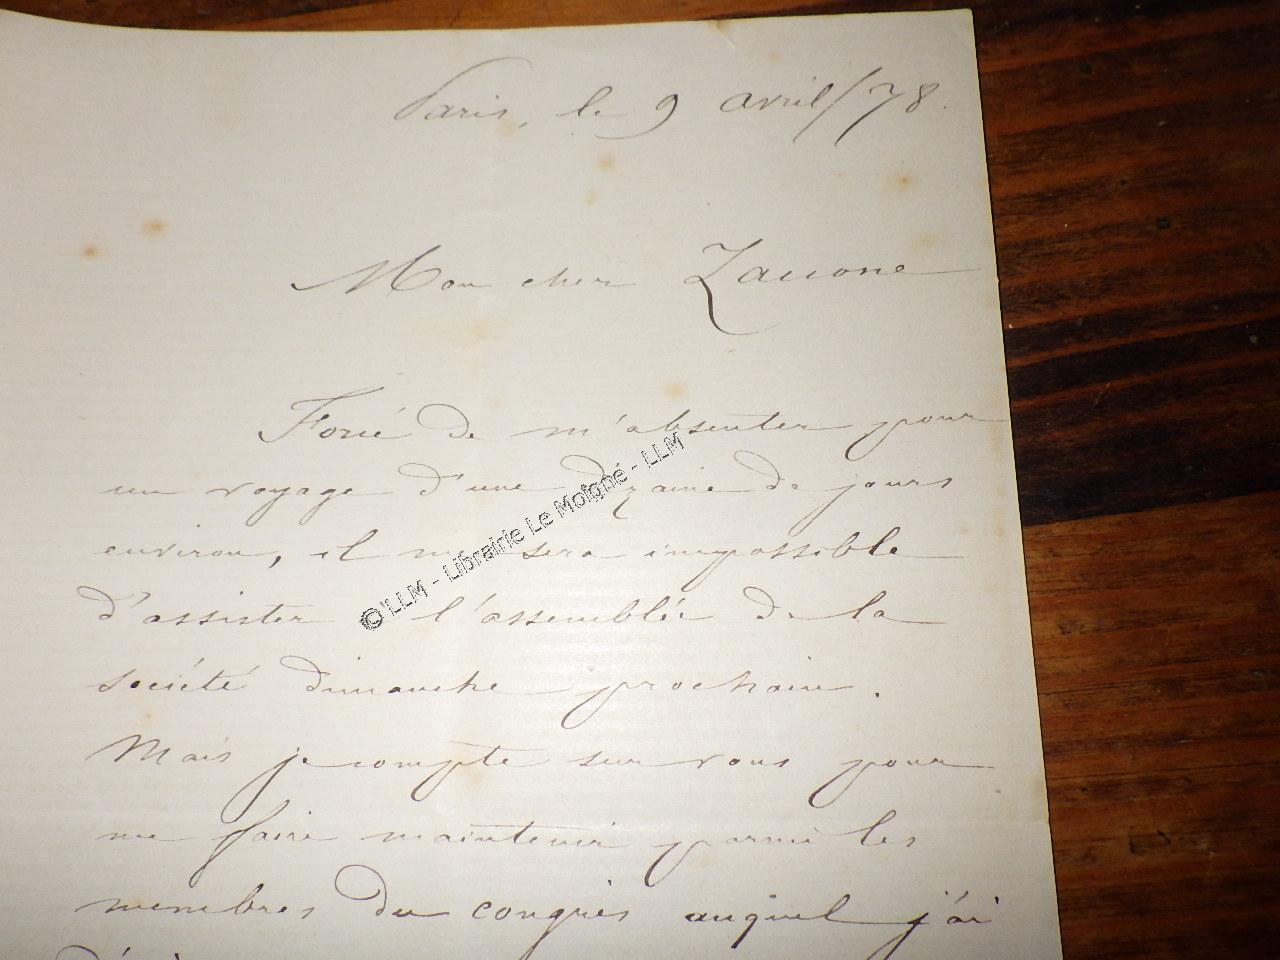 Paris, le 9 avril/78.
Mon cher Zaccone
Forcé de m'absenter pour
un voyage d'une dizaine de jours
environ, il me sera impossible
d'assister à l'assemblée de la
société dimanche prochain.
Mais je compte sur vous pour
me faire maintenir parmi les
membres du congrès auquel j'ai
©'LLM - Librairie Le Mofoné - LLM